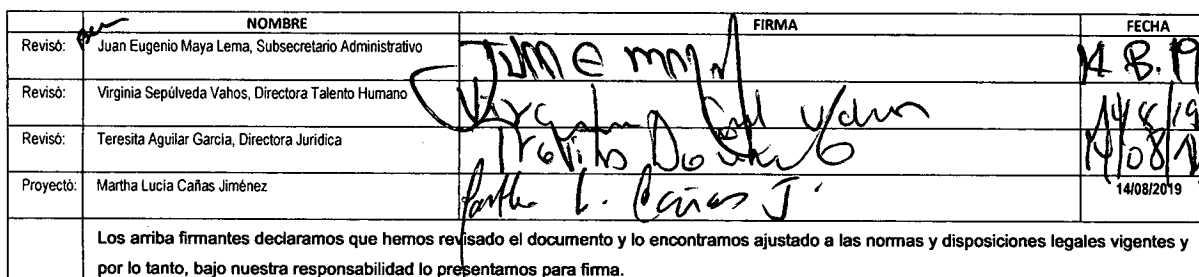 NOMBRE FIRMA FECHA
Revisó: Juan Eugenio Maya Lema, Subsecretario Administrativo
Revisó: Virginia Sepúlveda Vahos, Directora Talento Humano 14/8/19
Revisó: Teresita Aguilar García, Directora Jurídica 14/08/
Proyectó: Martha Lucía Cañas Jiménez Martha L. Cañas J. 14/08/2019
Los arriba firmantes declaramos que hemos revisado el documento y lo encontramos ajustado a las normas y disposiciones legales vigentes y
por lo tanto, bajo nuestra responsabilidad lo presentamos para firma.